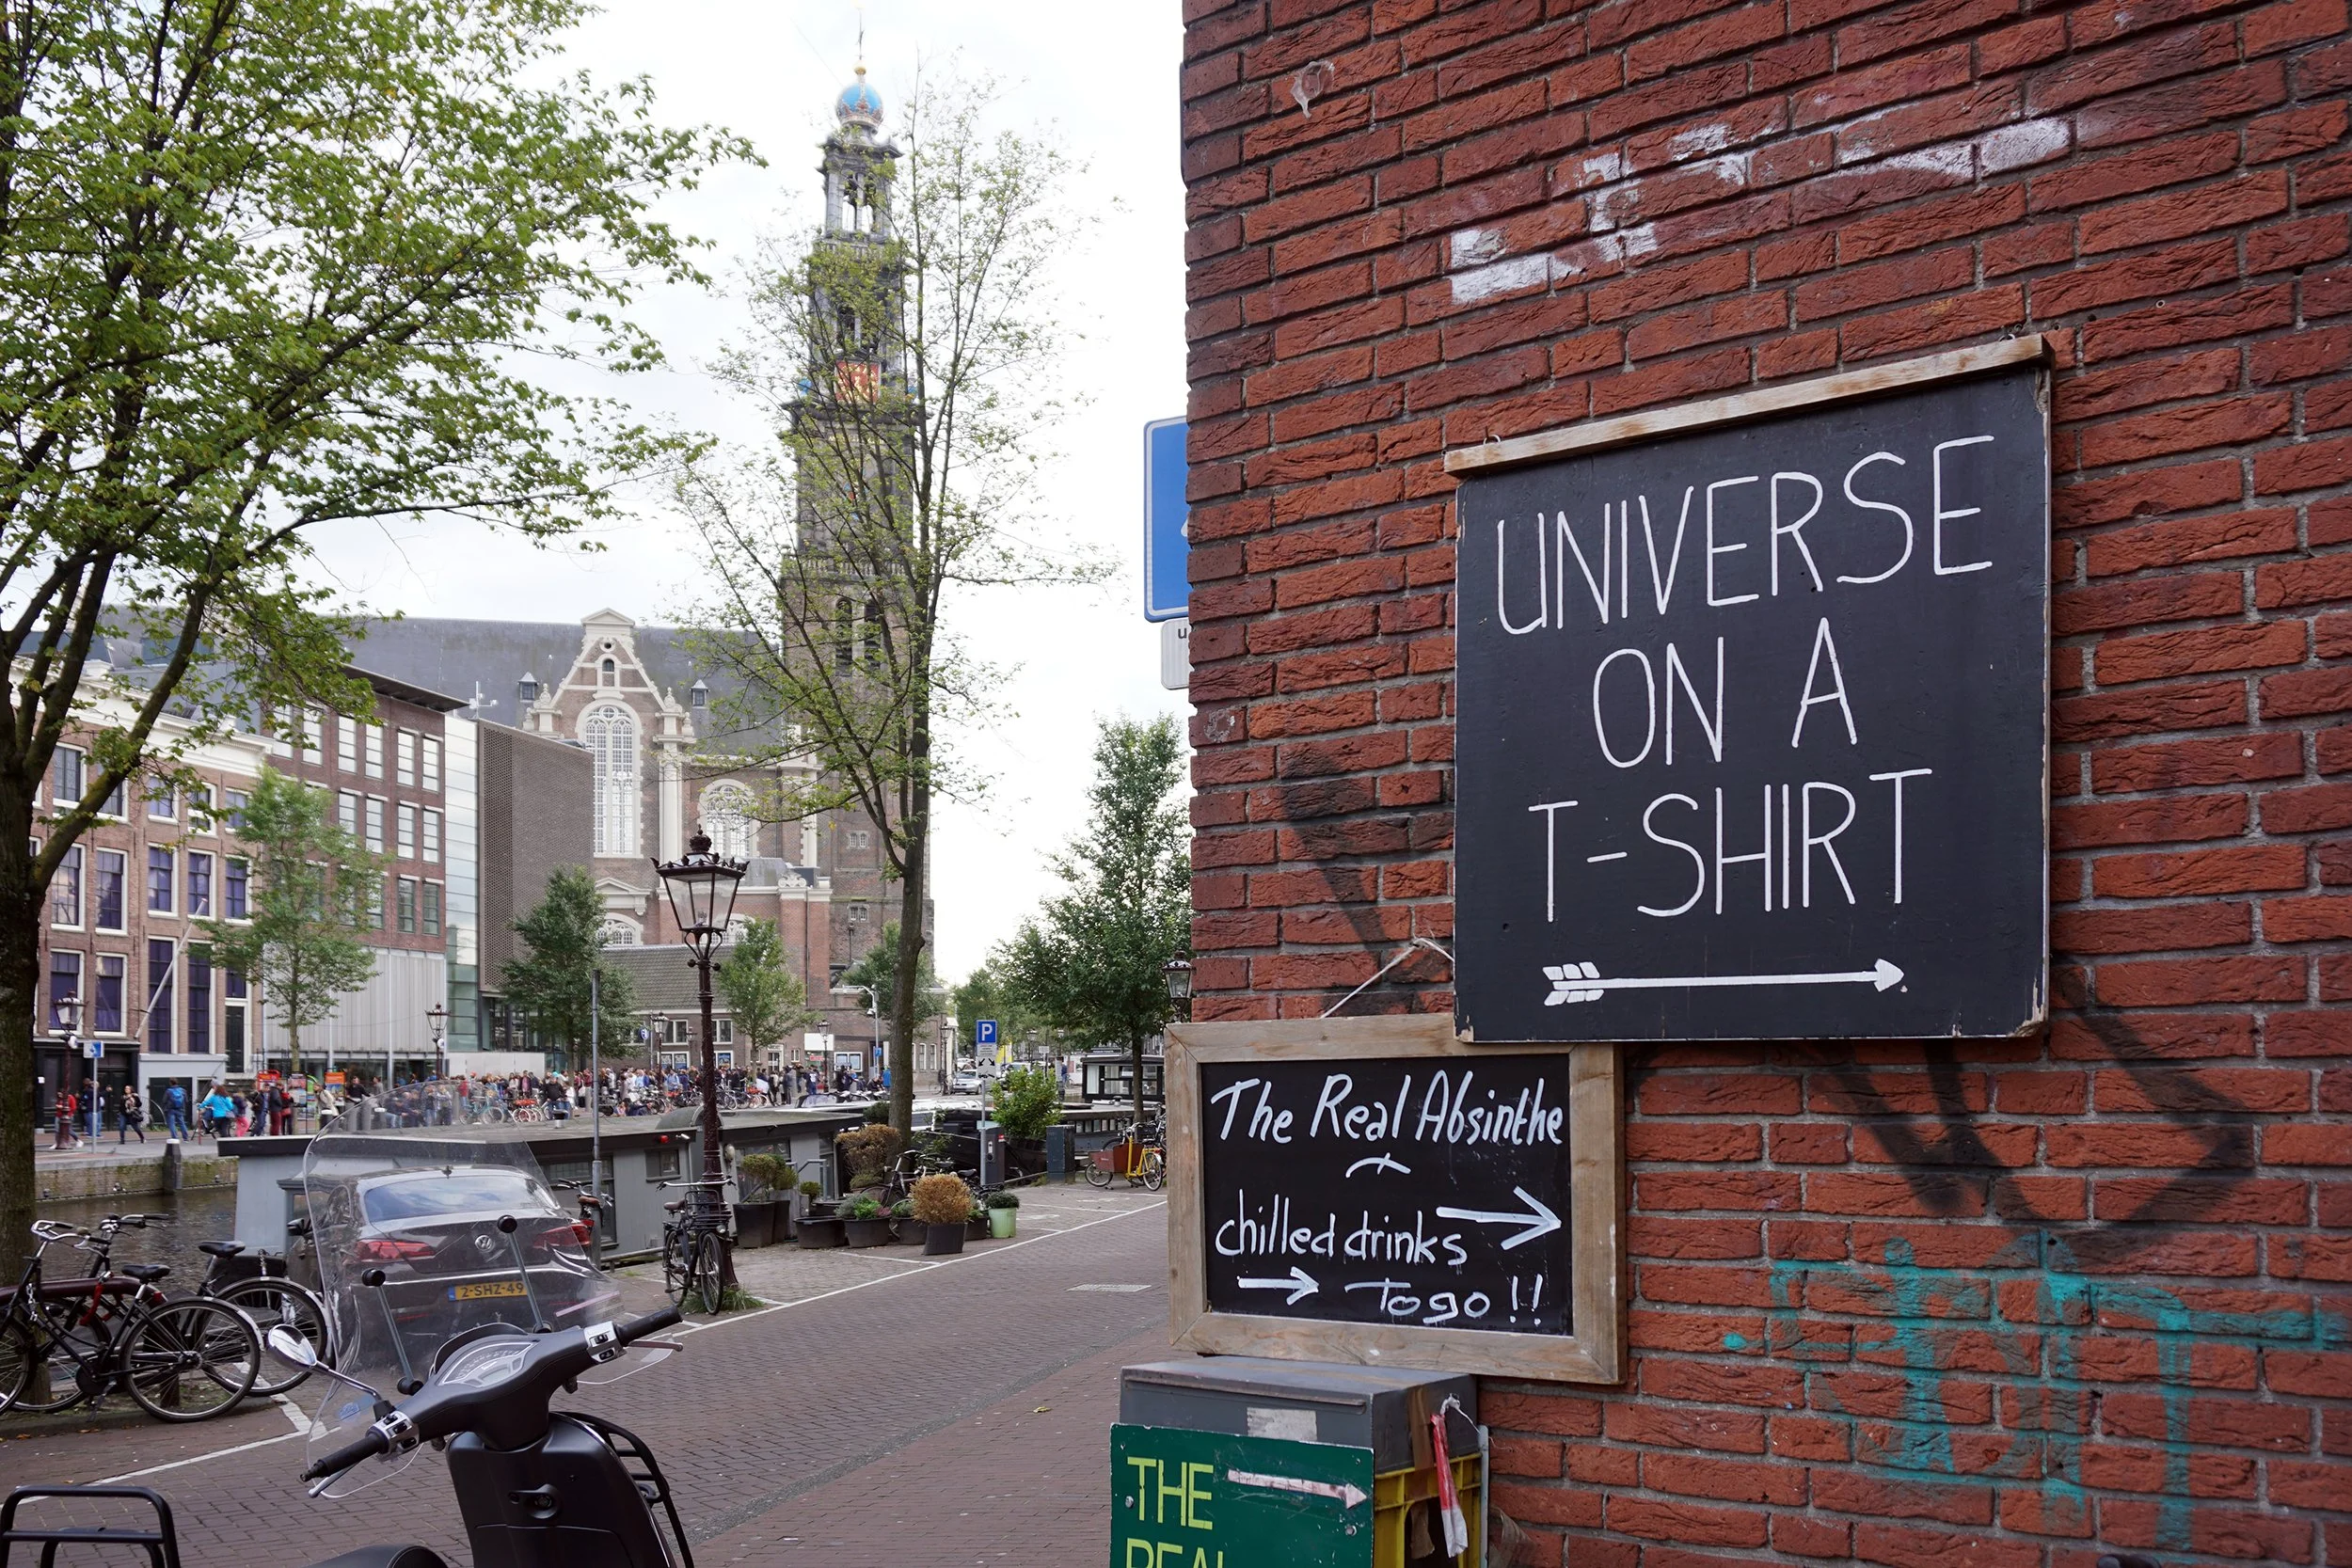 UNIVERSE
ON A
T-SHIRT
The Real Absinthe
chilled drinks
To go !!
THE
REAL
P
2-SHZ-49